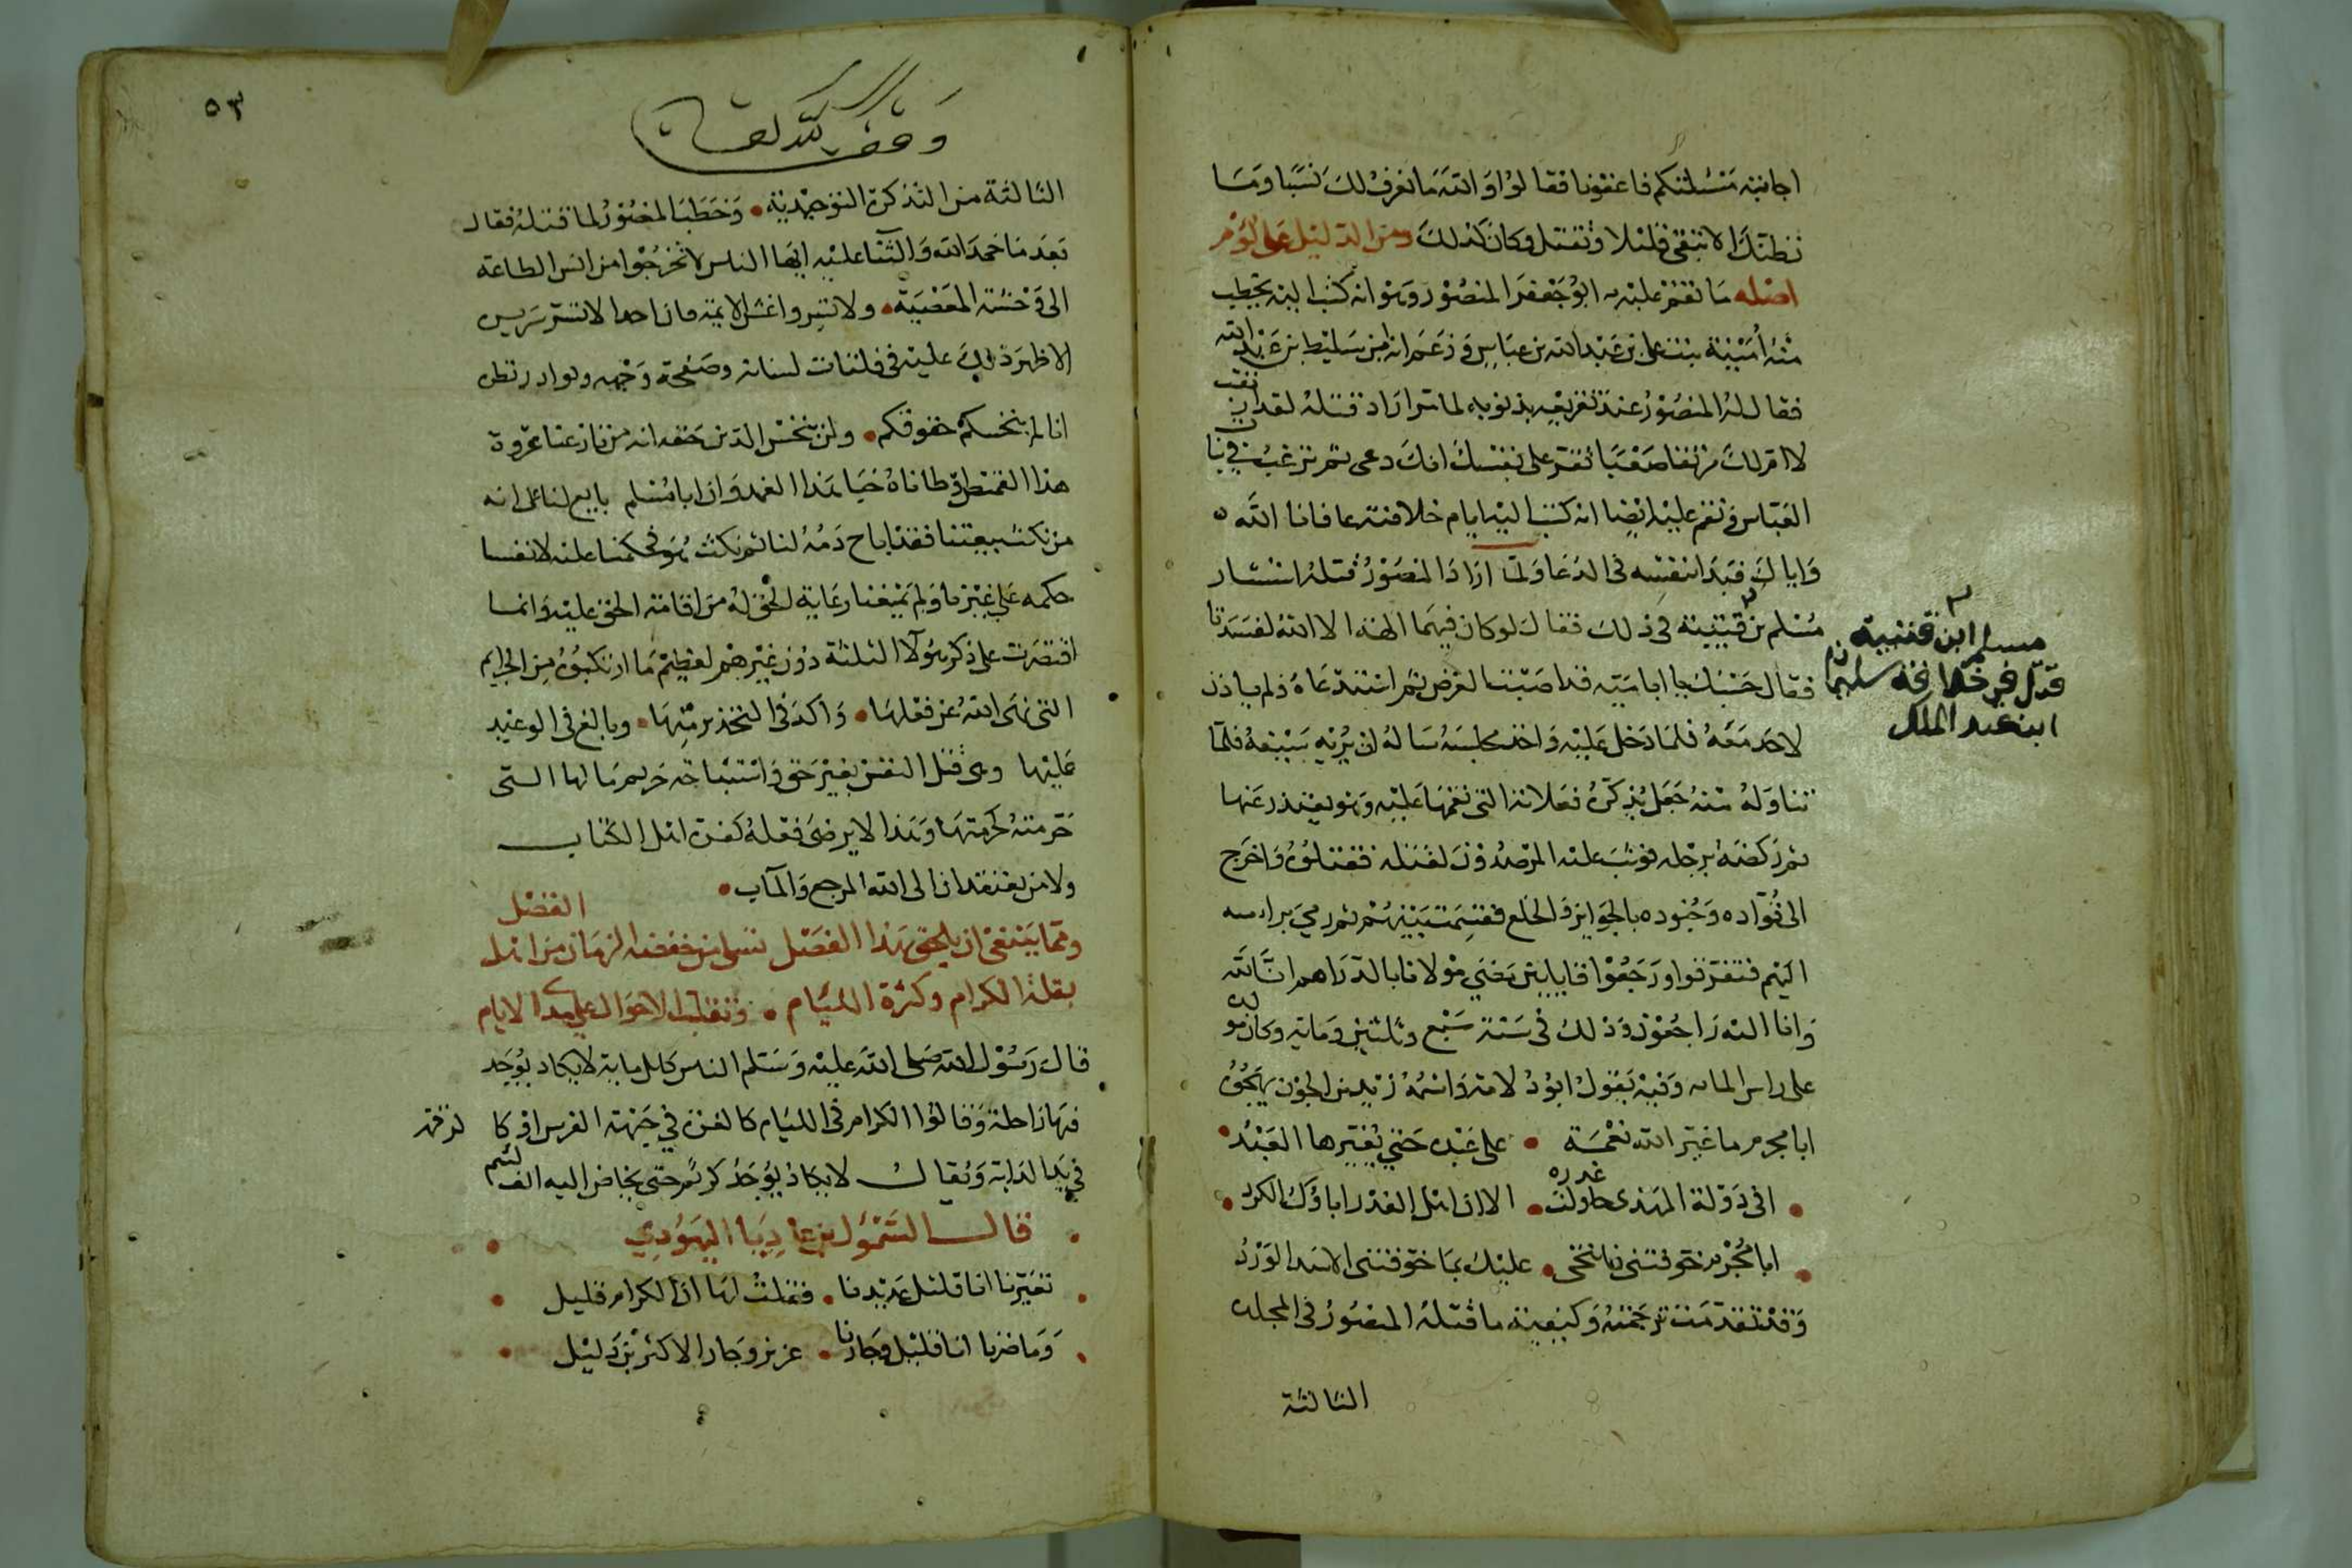 اجانبه مسئلتكم فاعفونا فقالوا والله ما نعرف لك نسبا وما
نظنك الا تبقى قليلا وتقتل وكان كذلك ومن الدليل على لؤم
اصله ما نقم عليه به ابو جعفر المنصور وهو انه كتب اليه يخطب
منه امينة بنت علي بن عبد الله بن عباس وزعم انه من سليط بن عبد الله
فقال له المنصور عند تقريعه بذنوبه لما اراد قتله لقد ارتقيت
لا ام لك مرتقا صعبا تقر على نفسك انك دعي ثم ترغب في بنات
العباس ونقم عليه ايضا انه كتب اليه ايام خلافته عافانا الله
واياك فبدا بنفسه في الدعا ولما اراد المنصور قتله استشار
مسلم بن قتيبة في ذلك فقال لو كان فيهما الهة الا الله لفسدتا
فقال حسبك يا ابا امية قد اصبت الغرض ثم استدعاه ولم ياذن
لاحد معه فلما دخل عليه واخذ مجلسه ساله ان يريه سيفه فلما
تناوله منه جعل يذكره فعلاته التي نقمها عليه وهو يعتذر عنها
ثم ركضه برجله فوثب عليه المرصدون لقتله فقتلوه واخرج
الى قواده وجنوده بالجوايز والخلع فقسمت بينهم ثم رمي براسه
اليهم فتفرقوا ورجعوا قايلين رضي مولانا بالدراهم انا لله
وانا اليه راجعون وذلك في سنة سبع وثلثين وماية وكان مولده
على راس الماية وفيه يقول ابو دلامة واسمه زند بن الجون يهجوه
ابا مجرم ما غير الله نعمة • على عبده حتى يغيرها العبد •
• افي دولة المهدي حاولت غدره • الا ان اهل الغدر اباؤك الكرد •
• ابا مجرم خوفتني فانتخى • عليك بما خوفتني الاسد الورد
وقد تقدمت ترجمته وكيفية ما قتله المنصور في المجلد
الثالثة
مسلم ابن قتيبة
قتل في خلافة سليمان
ابن عبد الملك
٥٣
وقف لله تعالى
الثالثة من التذكرة التوحيدية • وخطب المنصور لما قتله فقال
بعد ما حمد الله والثنا عليه ايها الناس لا تخرجوا من انس الطاعة
الى وحشة المعصية • ولا تسروا غش الايمة فان احدا لا تستر سريرة
الا ظهر ذلك عليه في فلتات لسانه وصفحة وجهه وبوادر نظره
انا لم نبخسكم حقوقكم • ولن نبخس الدين حقه انه من نازعنا عروة
هذا القميص اوطاناه خبا هذا الغمد وان ابا مسلم بايع لنا على انه
من نكث بيعتنا فقد اباح دمه لنا ثم نكث هو فحكمنا عليه لانفسنا
حكمه على غيره لنا ولم تمنعنا رعاية الحق له من اقامة الحق عليه وانما
اقتصرت على ذكر هولآ الثلثة دون غيرهم لعظيم ما ارتكبوه من الجرايم
التي نهى الله عن فعلها • واكد في التحذير منها • وبالغ في الوعيد
عليها وهي قتل النفس بغير حق واستباحة حريم مالها التي
حرمته كحرمتها وهذا لا يرضى فعله كفرة اهل الكتاب
ولا من يعتقد ان الى الله المرجع والمآب •
ومما ينبغي ان يلحق بهذا الفصل تسلي من خفضه الزمان من اهل الفضل
بقلة الكرام وكثرة اللئام • وتقلب الاحوال على مدا الايام
قال رسول الله صلى الله عليه وسلم الناس كابل ماية لا يكاد يوجد
فيها راحلة وقالوا الكرام في اللئام كالغرة في جبهة الفرس او كالرقمة
في يد الدابة ويقال لا يكاد يوجد كريم حتى يخاض اليه الف لئيم
قال السمول بن عاديا اليهودي
تعيرنا انا قليل عديدنا • فقلت لها ان الكرام قليل •
وما ضرنا انا قليل وجارنا • عزيز وجار الاكثرين ذليل •